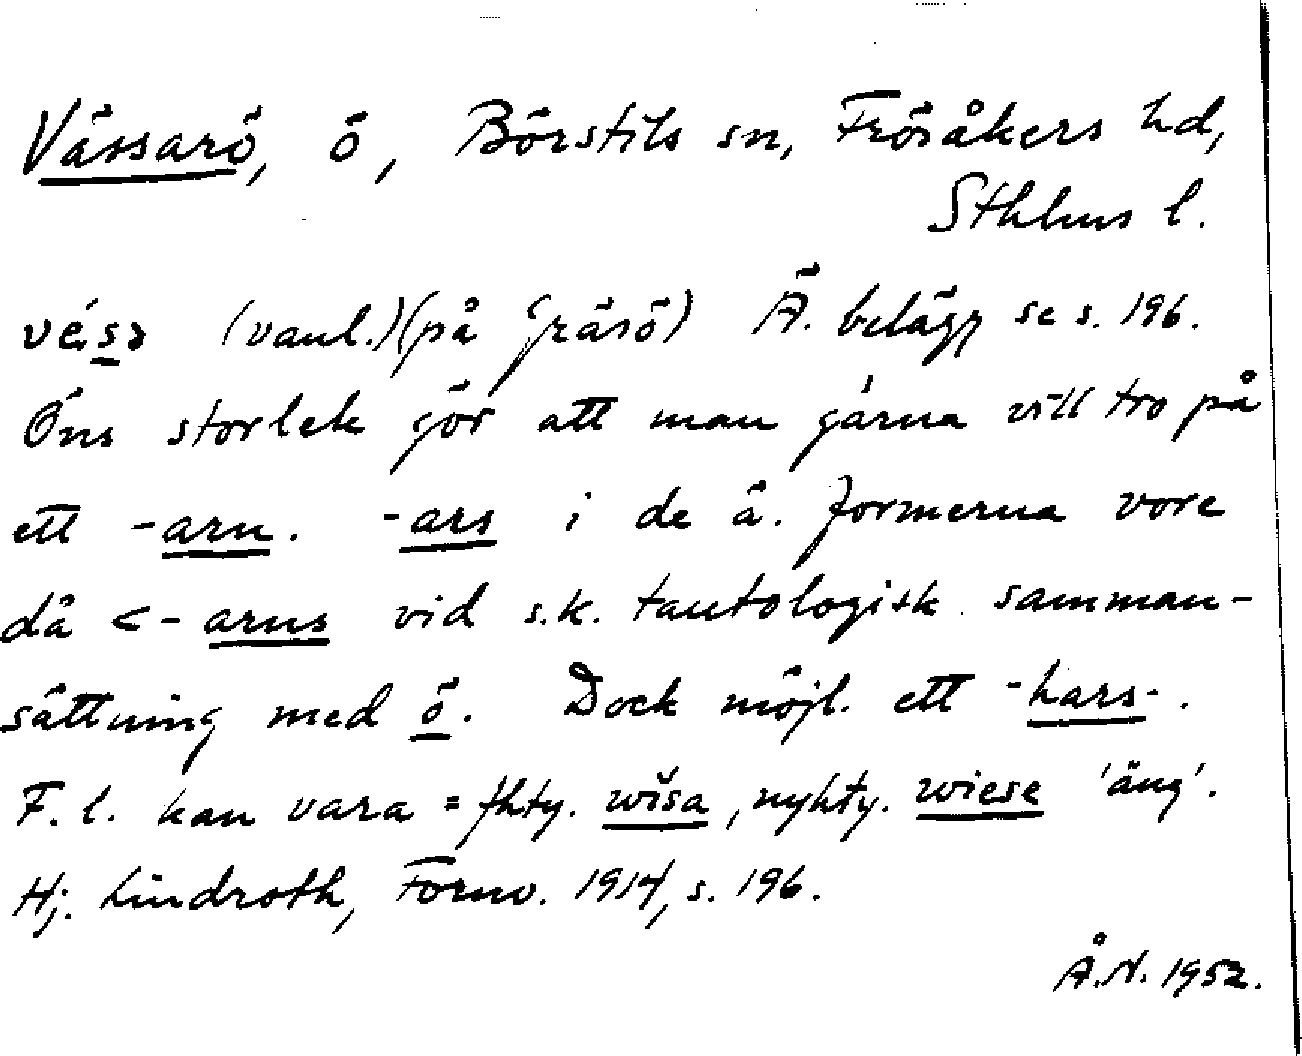 Vässarö, ö, Börstils sn, Frösåkers hd,
Sthlms l.
(vanl.) (på Gräsö) Ä. belägg se s. 196.
Öns storlek gör att man gärna vill tro på
ett -arn. -ars i de ä. formerna vore
då < -arns vid s.k. tautologisk samman-
sättning med ö. Dock möjl. ett -hars-.
F. l. kan vara = fhty. wisa, nyhty. wiese 'äng'.
Hj. Lindroth, Fornv. 1914, s. 196.
Å.N. 1952.